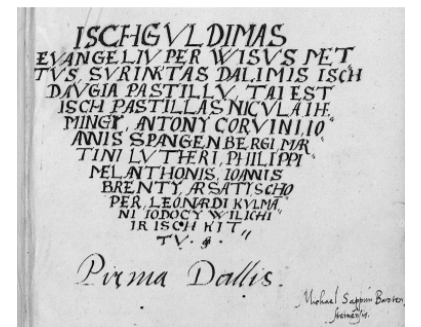 ISCHGVLDIMAS
EVANGELIV PER WISVS MET
TVS, SVRINKTAS DALIMIS ISCH
DAVGIA PASTILLV, TAI EST
ISCH PASTILLAS NICVLAI H.
MINGY, ANTONY CORVINI, IO
ANNIS SPANGENBERGI, MAR
TINI LVTHERI, PHILIPPI
MELANTHONIS, IOANNIS
BRENTY, ARSATY SCHO
PER, LEONARDI KVLMA
NI IODOCY WILICHI
IR ISCH KIT
TV.
Pirma Dallis.
Michael Sappun